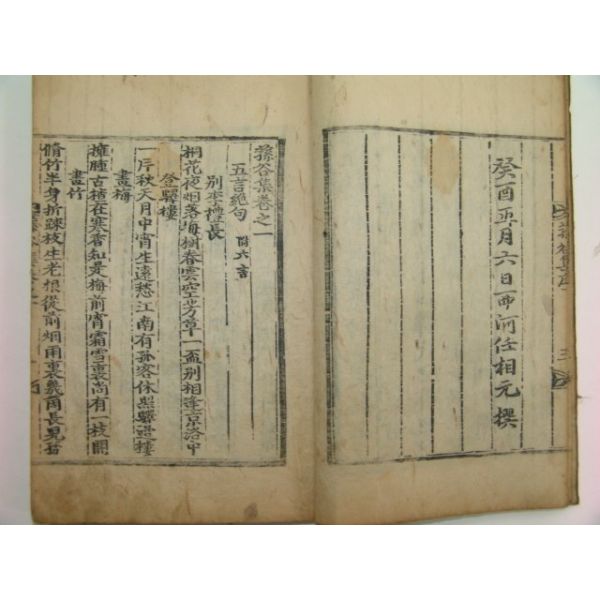 癸酉正月六日西河任相元撰
蓀谷集序 三
蓀谷集卷之一
五言絶句 附六言
別李禮長
桐花夜烟落海樹春雲空芳草一盃別相逢京洛中
登驛樓
一片秋天月中宵生遠愁江南有孤客休照驛邊樓
畫梅
擁腫古槎在寒香知是梅前宵霜雪裏尚有一枝開
畫竹
脩竹半身折踈枝生老根從前烟雨裏幾箇長兒孫